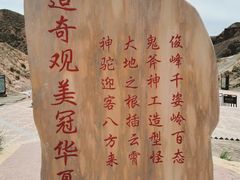 造奇观美冠华夏
俊峰千姿岭百态
鬼斧神工造型怪
大地之根插云霄
神驼迎客八方来